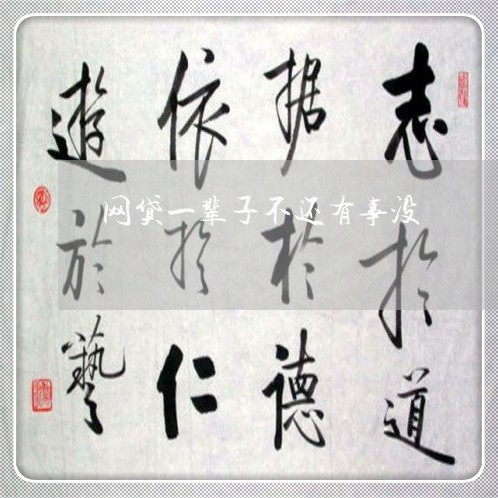 志於道
据於德
依於仁
遊於藝
网贷一辈子不还有事没